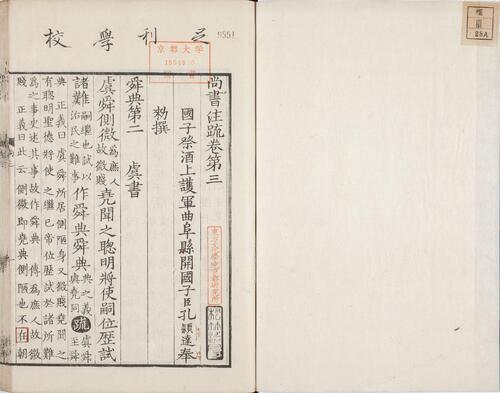 足利學校
京都大学
尚書注疏卷第三
國子祭酒上護軍曲阜縣開國子臣孔穎達奉
勑撰
舜典第二 虞書
虞舜側微為庶人故微賤堯聞之聰明將使嗣位歷試
諸難嗣繼也試以治民之難事作舜典舜典典之義與堯同疏虞舜至舜
典 正義曰虞舜所居側陋身又微賤堯聞之
有聰明聖德將使之繼已帝位歷試於諸所難
為之事史述其事故作舜典 傳為庶人故微
賤 正義曰此云側微即堯典側陋也不在朝
東方文化學院京都研究所
28A